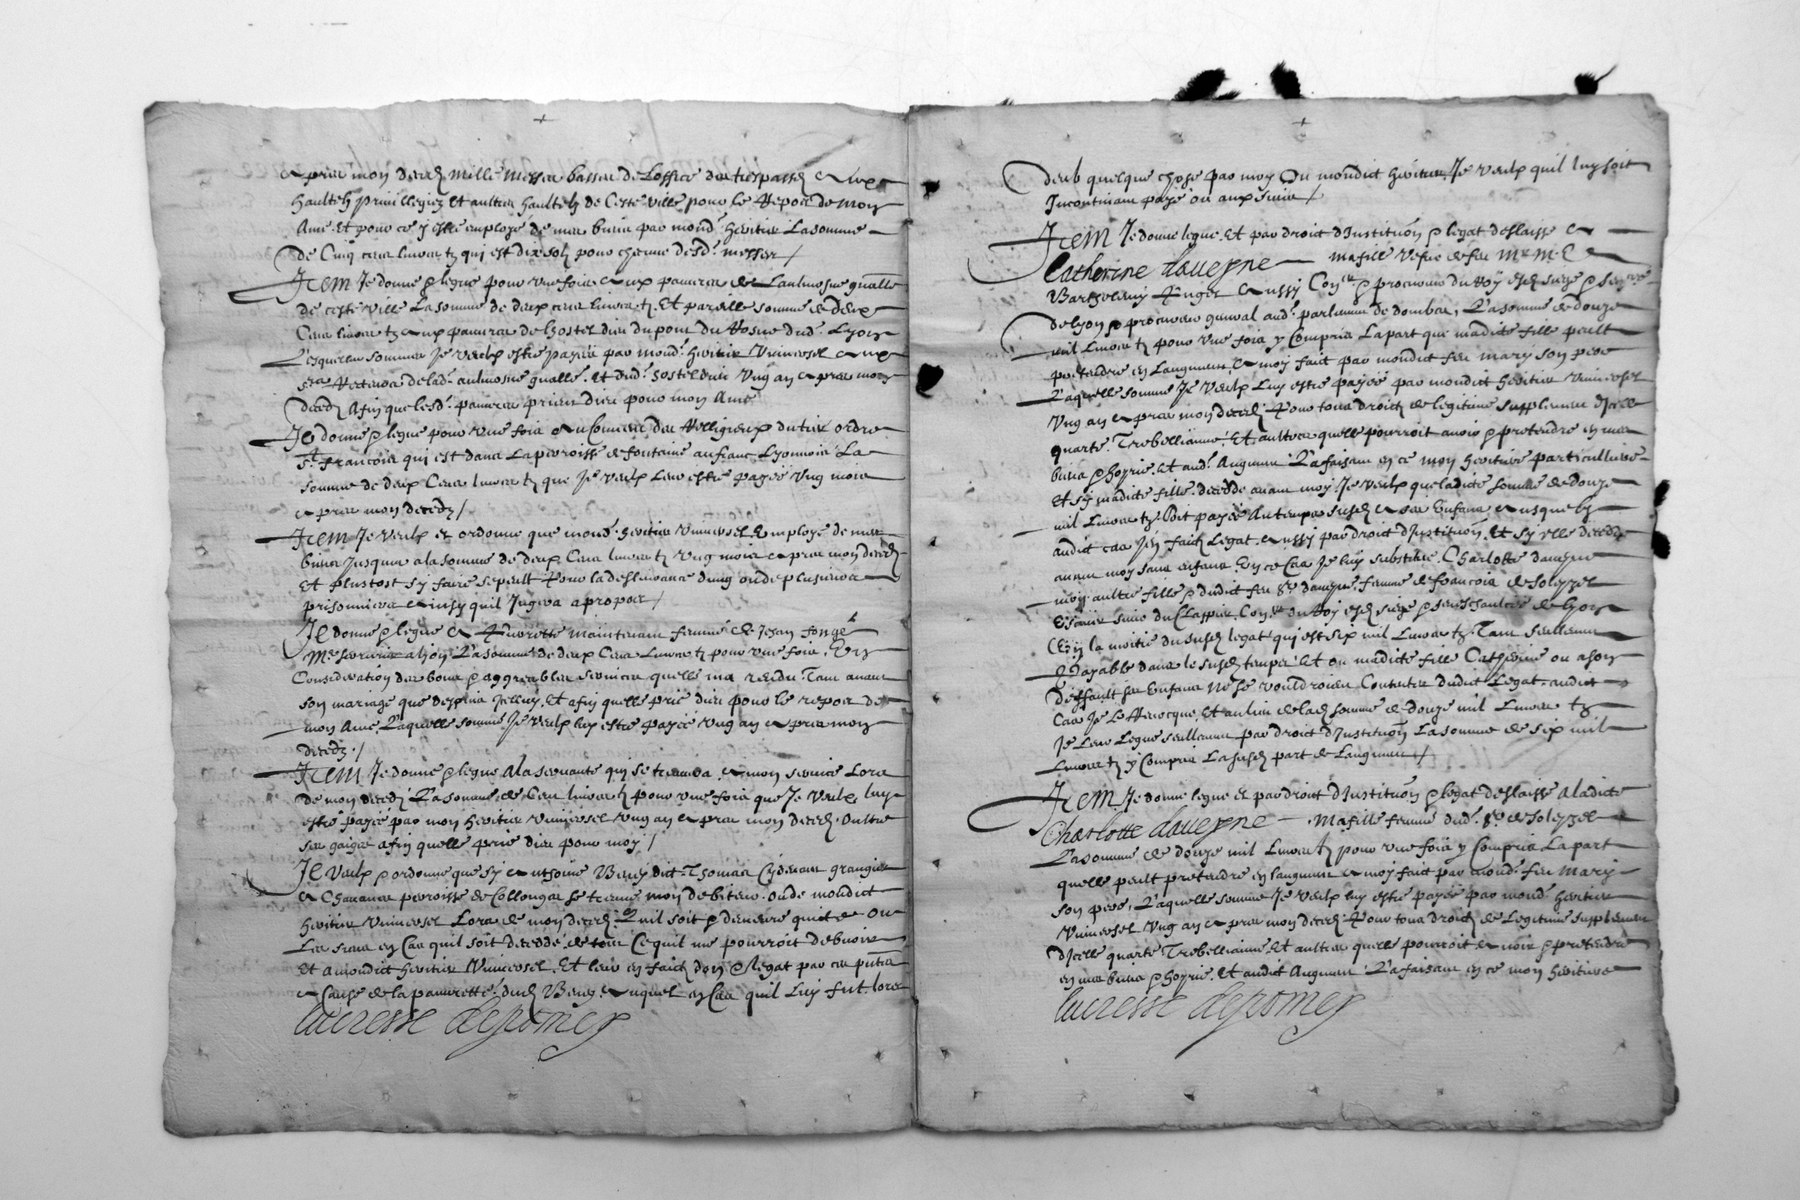 apres mon deces mille messes basses de l'office des trespassez aux
haultelz privillegiez et aultres haultelz de ceste ville pour le repoz de mon
Ame et pour ce y estre employe de mes biens par mond. heritier la somme
de Cinq cens livres tz qui est dix solz pour chacune desd. messes /
Item Je donne & legue pour une fois aux pauvres de l'aulmosne gnalle
de ceste ville la somme de deux cens livres tz. Et pareille somme de deux
Cens livres tz aux pauvres de l'hostel dieu du pont du Rosne dud. Lyon
Lesquelles sommes Je veulx estre payees par mond. heritier universel aux
srs Recteurs de lad. aulmosne gnalle. Et dud. hostel dieu ung an apres mon
deces Afin que lesd. pauvres prient dieu pour mon Ame
Je donne & legue pour une fois au Couvent des Relligieux du tier ordre
st. francois qui est dans la parroisse de fontaine au franc Lyonnois La
somme de deux Cens livres tz que Je veulx leur estre payee ung mois
apres mon decedz /
Item Je veulx et ordonne que mond. heritier universel employe de mes
biens Jusques a la somme de deux Cens livres tz ung mois apres mon deces
Et plustost sy faire se peult Pour la deslivrance d'ung ou de plusieurs
prisonniers ainsy quil Jugera a propos /
Je donne & legue a Pierrette maintenant femme de Jehan fonge
Me serrurier a lion La somme de deux Cens livres tz pour une fois. En
Consideration des bons & aggreables services quelle ma rendu Tant avant
son mariage que despuis Jcelluy, et afin quelle prie dieu pour le repoz de
mon Ame. Laquelle somme Je veulx luy estre payee ung an apres mon
decedz. /
Item Je donne & legue A la servante qui se trouvera a mon service Lors
de mon decedz La somme de Cent livres tz pour une fois que Je veulx luy
estre payee par mon heritier universel ung an apres mon deces. Oultre
ses gaiges afin quelle prie dieu pour moy /
Je veulx & ordonne que sy anthoine Berey dict Thomas grangier
a Chavanes parroisse de Collonges se treuve mon debiteur. Ou de mondict
heritier universel Lors de mon deces. Quil soit & demeure quicte Ou
Les siens en Cas quil soit decedde de tout Ce quil me pourroit debvoir
Et a mondict heritier universel. Et leur en faict don & legat par ces pntes
a Cause de la pauvrette dud. Berey. Auquel en Cas quil luy fut lors
lucresse depomey
deub quelque chose par moy Ou mondict heritier, Je veulx quil luy soit
Jncontinant paye ou aux siens /
Item Je donne legue. Et par droit d'Institution & legat deslaisse a
Catherine dauergne ma fille Vefve de feu Mre Me
Barthelemy auger aussy Conr & procureur du Roy esd. siege & senneé
de lyon & procureur general aud. parlement de dombes, La somme de douze
mil livres tz pour une fois y Compris La part que madicte fille peult
pretendre en Laugment a moy faict par mondict feu mary son pere
Laquelle somme Je veulx Luy estre payee par mondict heritier universel
Ung an apres mon deces. Pour tous droictz de legitime supplement d'icelle
quarte Trebellianne. Et aultres quelle pourroit avoir & pretendre en mes
biens & hoyrie. Et aud. Augment. La faisant en ce mon heritiere particulliere
Et sy madicte fille decedde avant moy. Je veulx que ladicte somme de douze
mil livres tz soit payee Au temps susd. a ses enfans ausquelz
audict cas Jen faictz legat. aussy par droict d'Institution. Et sy elle decedde
avant moy sans enfans. En ce Cas Je luy substitue. Charlotte dauergne
mon aultre fille & dudict feu Sr dauergne. femme de francois de soleyzel
escuier sieur du Clappier Conr du Roy esd. siege & seneschaulcee de Lyon
En la moitie du susd. legat qui est six mil livres tz. Tant seullement
payable dans le susd. temps. Et ou madicte fille Catherine ou a son
deffault ses enfans ne se vouldroient Contenter dudict legat. audict
Cas Je le Revocque, Et au lieu de lad. somme de douze mil livres tz
Je Leur Legue seullement par droict d'Institution La somme de six mil
Livres tz y Compris La susd. part de laugment /
Item Je donne legue et par droict d'Institution & legat deslaisse A ladicte
Charlotte dauergne Ma fille femme dud. Sr de soleyzel
La somme de douze mil livres tz pour une fois y Compris La part
quelle peult pretendre en laugment a moy faict par mond. feu mary
son pere, Laquelle somme Je veulx luy estre payee par mond. heritier
universel Ung an apres mon deces. Pour tous droictz de Legitime supplement
d'icelle quarte Trebellianne Et aultres quelle pourroit avoir & pretendre
en mes biens & hoyrie. Et audict Augment. La faisant en ce mon heritiere
lucresse depomey